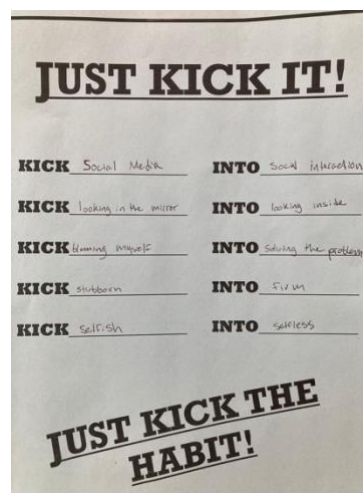 JUST KICK IT!
KICK Social Media INTO Social interaction
KICK looking in the mirror INTO looking inside
KICK blaming myself INTO solving the problem
KICK stubborn INTO firm
KICK selfish INTO selfless
JUST KICK THE
HABIT!